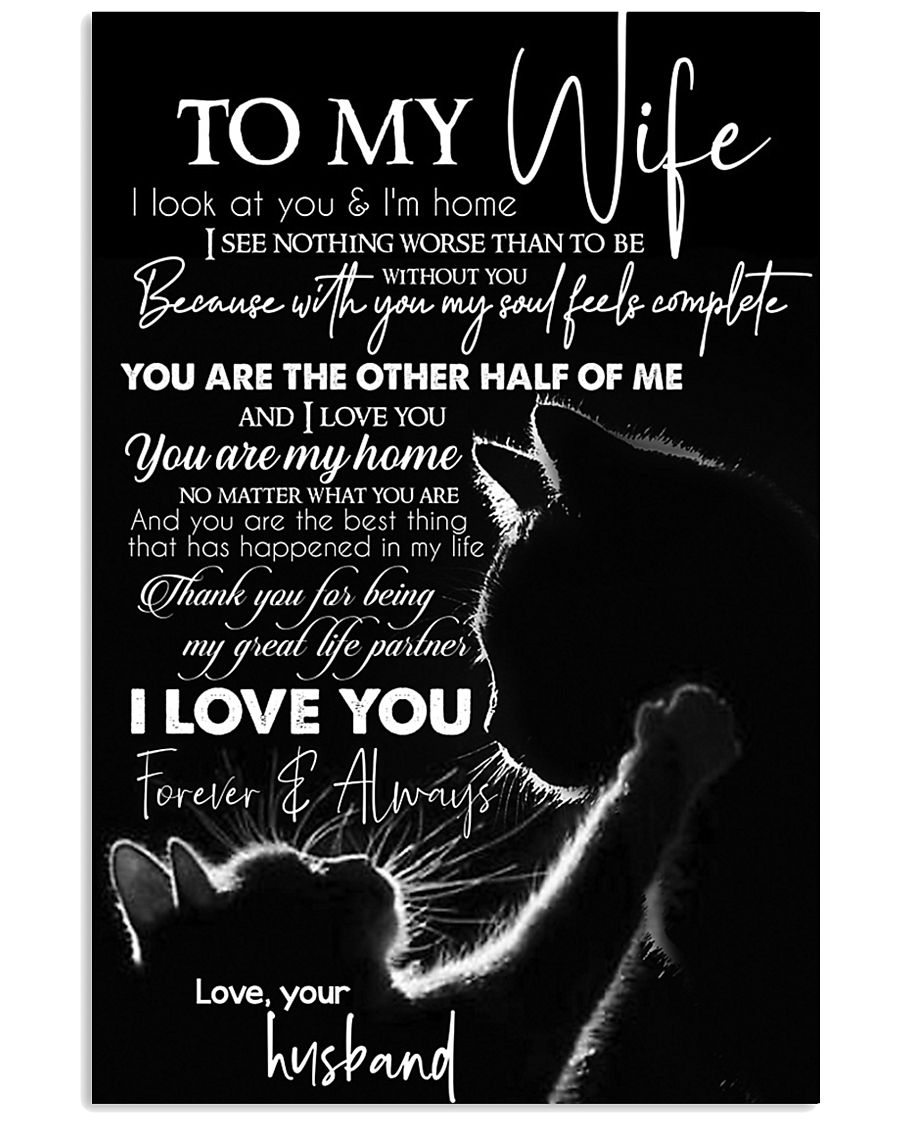 TO MY Wife
I look at you & I'm home
I SEE NOTHING WORSE THAN TO BE
WITHOUT YOU
Because with you my soul feels complete
YOU ARE THE OTHER HALF OF ME
AND I LOVE YOU
You are my home
NO MATTER WHAT YOU ARE
And you are the best thing
that has happened in my life
Thank you for being
my great life partner
I LOVE YOU
Forever & Always
Love, your
husband